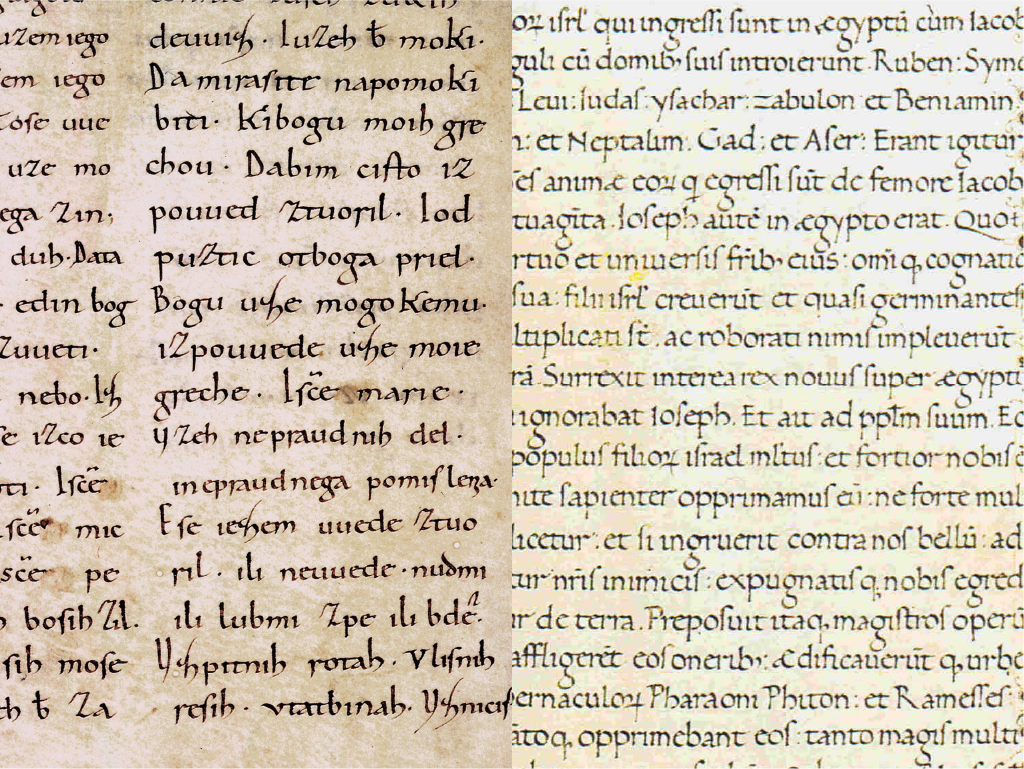 uzem iego
em iego
Tose vue
uze mo
ega Zin;
duh. Data
edin bog
Zuueti.
nebo. Iſh
se iZco ie
ti. Iſcē
ſcē mic
ſcē pe
bosih Zil.
sih mose
h b̄ Za
devviſh. IuZeh b̄ moki.
Damirasite napomoki
biti. Kibogu moih gre
chou. Dabim ciſto iZ
pouued Ztuoril. Iod
puZtic otboga priel.
Bogu uſhe mogoKemu.
iZpouuede uſhe moie
greche. Iſcē marie.
yZeh nepraudnih del.
inepraudnega pomiſlena.
Eſe ieſhem uuede Ztuo
ril. ili neuuede. nudmi
ili lubmi Zpe ili bdē.
Vſhpitnih rotah. Vliſnih
reſih. vtatbinah. Vſhniciſ
oꝝ iſrl̄ qui ingreſſi sunt in ægyptū cùm Iacob
guli cū domib; suis introierunt. Ruben: Syme
Leui: Iudas: ysachar: zabulon et Beniamin
n: et Neptalim. Gad: et Aser: Erant igitur
es animæ eoꝝ q̄ egreſſi sūt de femore Iacob
tuagīta. Ioseph autē in ægypto erat. Quo
rtuo et universis frīb; eius: omīq; cognatio
sua: filii iſrl̄ creverūt et quasi germinantes
ltiplicati sī. ac roborati nimis impleverūt
rā. Surrexit interea rex novus super ægyptū
ignorabat Ioseph. Et ait ad pplm̄ suum. Ec
populus filioꝝ israel ml̄tus: et fortior nobis ē
ite sapienter opprimamus eū: ne forte mul
licetur: et si ingruerit contra nos bellū: ad
ur nr̄is inimicis: expugnatisq; nobis egred
r de terra. Preposuit itaq; magistros operū
affligerēt eos oneribꝫ: ædificaverūt q; urbe
ernaculoꝝ Pharaoni Phiton: et Ramesses:
atoq; opprimebant eos: tanto magis multi